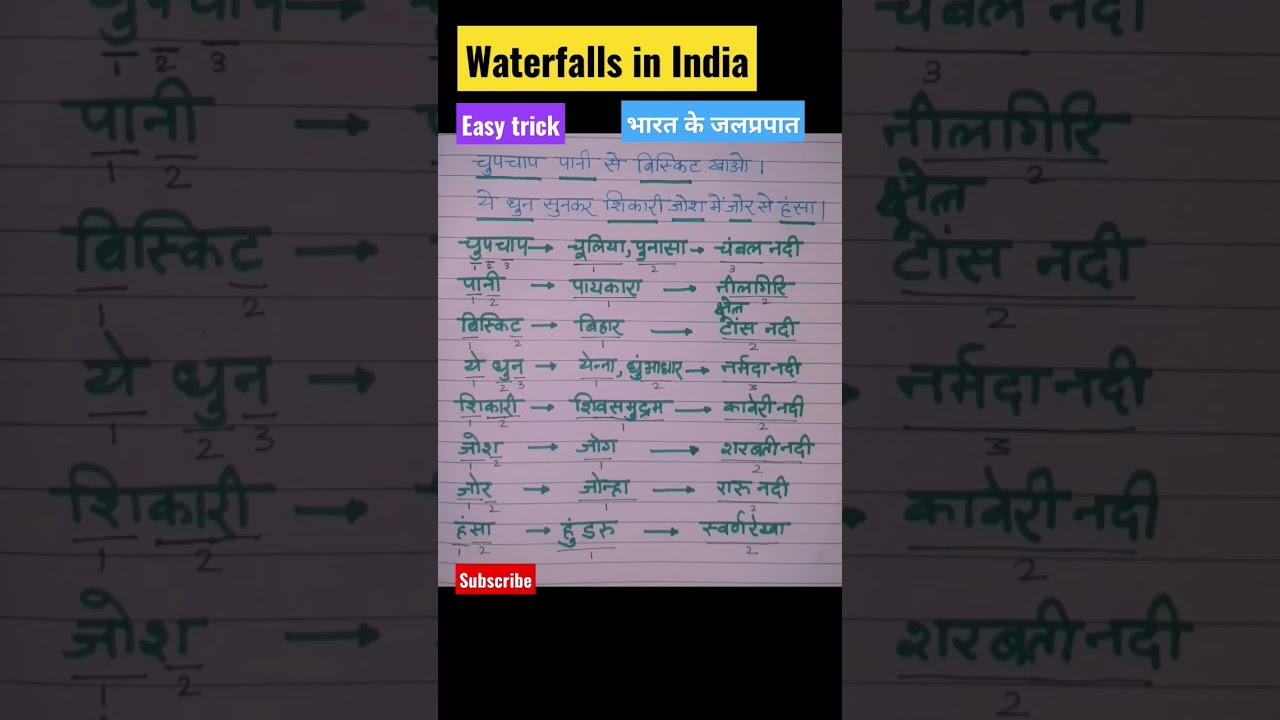 Waterfalls in India
Easy trick
भारत के जलप्रपात
चुपचाप पानी से बिस्किट खाओ।
ये धुन सुनकर शिकारी जोश में जोर से हंसा।
चुपचाप → चूलिया, पुनासा → चंबल नदी
1 2 3 1 2 3
पानी → पायकारा → नीलगिरि
1 2 1 2
क्षेत्र
बिस्किट → बिहार → टोंस नदी
1 2 1 2
ये धुन → येन्ना, धुंआधार → नर्मदा नदी
1 2 3 1 2 3
शिकारी → शिवसमुद्रम → कावेरी नदी
1 2 1 2
जोश → जोग → शरबती नदी
1 2 1 2
जोर → जोन्हा → रारू नदी
1 2 1 2
हंसा → हुंडरु → स्वर्णरेखा
1 2 1 2
Subscribe